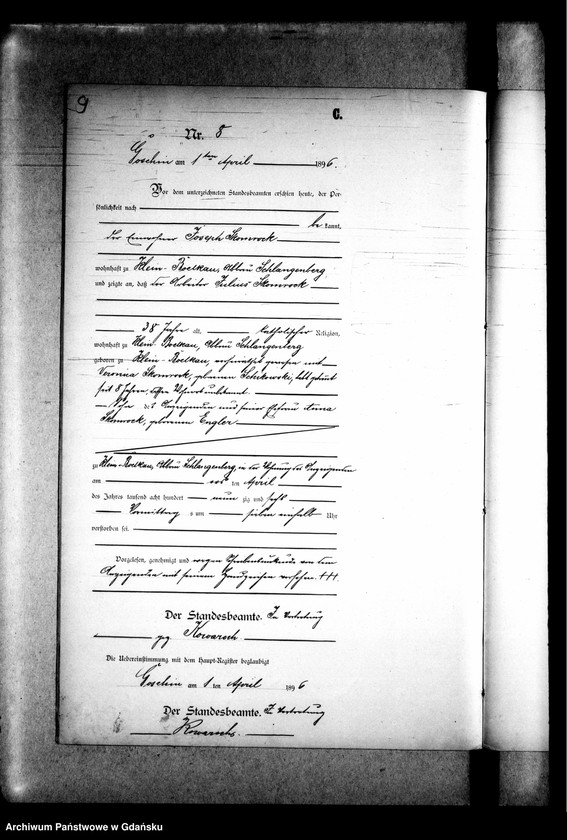 9
C.
Nr. 8
Goschin am 1ten April 1896.
Vor dem unterzeichneten Standesbeamten erschien heute, der Per-
sönlichkeit nach
be kannt,
der Einwohner Joseph Skomrock
wohnhaft zu Klein Roelkau, Abbau Schlangenberg
und zeigte an, daß der Arbeiter Julius Skomrock
38 Jahr alt, katholischer Religion,
wohnhaft zu Klein-Roelkau, Abbau Schlangenberg
geboren zu Klein-Roelkau, verheirathet gewesen mit
Veronica Skomrock, geborenen
seit 8 Jahren, unbekannt
Sohn des Anzeigenden und seiner Ehefrau Anna
Skomrock, geborenen Engler
zu Klein-Roelkau, Abbau Schlangenberg, in der Wohnung des Anzeigenden
am ten April
des Jahres tausend acht hundert neun zig und sechs
Vormittag s um sieben einhalb Uhr
verstorben sei.
Vorgelesen, genehmigt und wegen Schreibensunkunde von dem
Anzeigenden mit seinem Handzeichen versehen +++.
Der Standesbeamte. In Vertretung
gez. Kowarsch.
Die Uebereinstimmung mit dem Haupt-Register beglaubigt
Goschin am 1 ten April 1896
Der Standesbeamte. In Vertretung
Kowarsch.
Archiwum Państwowe w Gdańsku